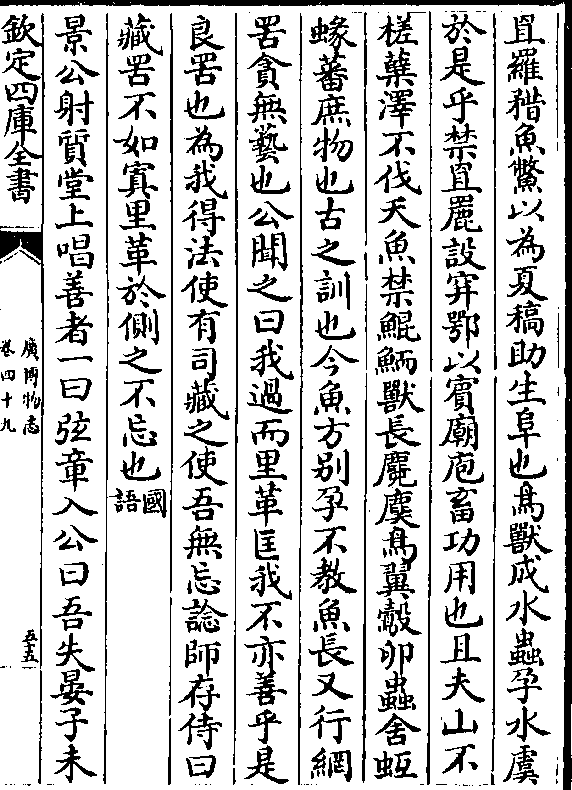 罝羅矠魚鱉以為夏稿助生阜也鳥獸成水蟲孕水虞
於是乎禁罝罜設穽鄂以實廟庖畜功用也且夫山不
槎蘖澤不伐夭魚禁鯤鮞獸長麑麌鳥翼鷇卵蟲舍蚳
蝝蕃庶物也古之訓也今魚方别孕不教魚長又行網
罟貪無藝也公聞之曰我過而里革匡我不亦善乎是
良罟也為我得法使有司藏之使吾無忘諗師存侍曰
藏罟不如寘里革於側之不忘也國語
景公射質堂上唱善者一曰弦章入公曰吾失晏子未
欽定四庫全書
廣博物志
卷四十九
五五